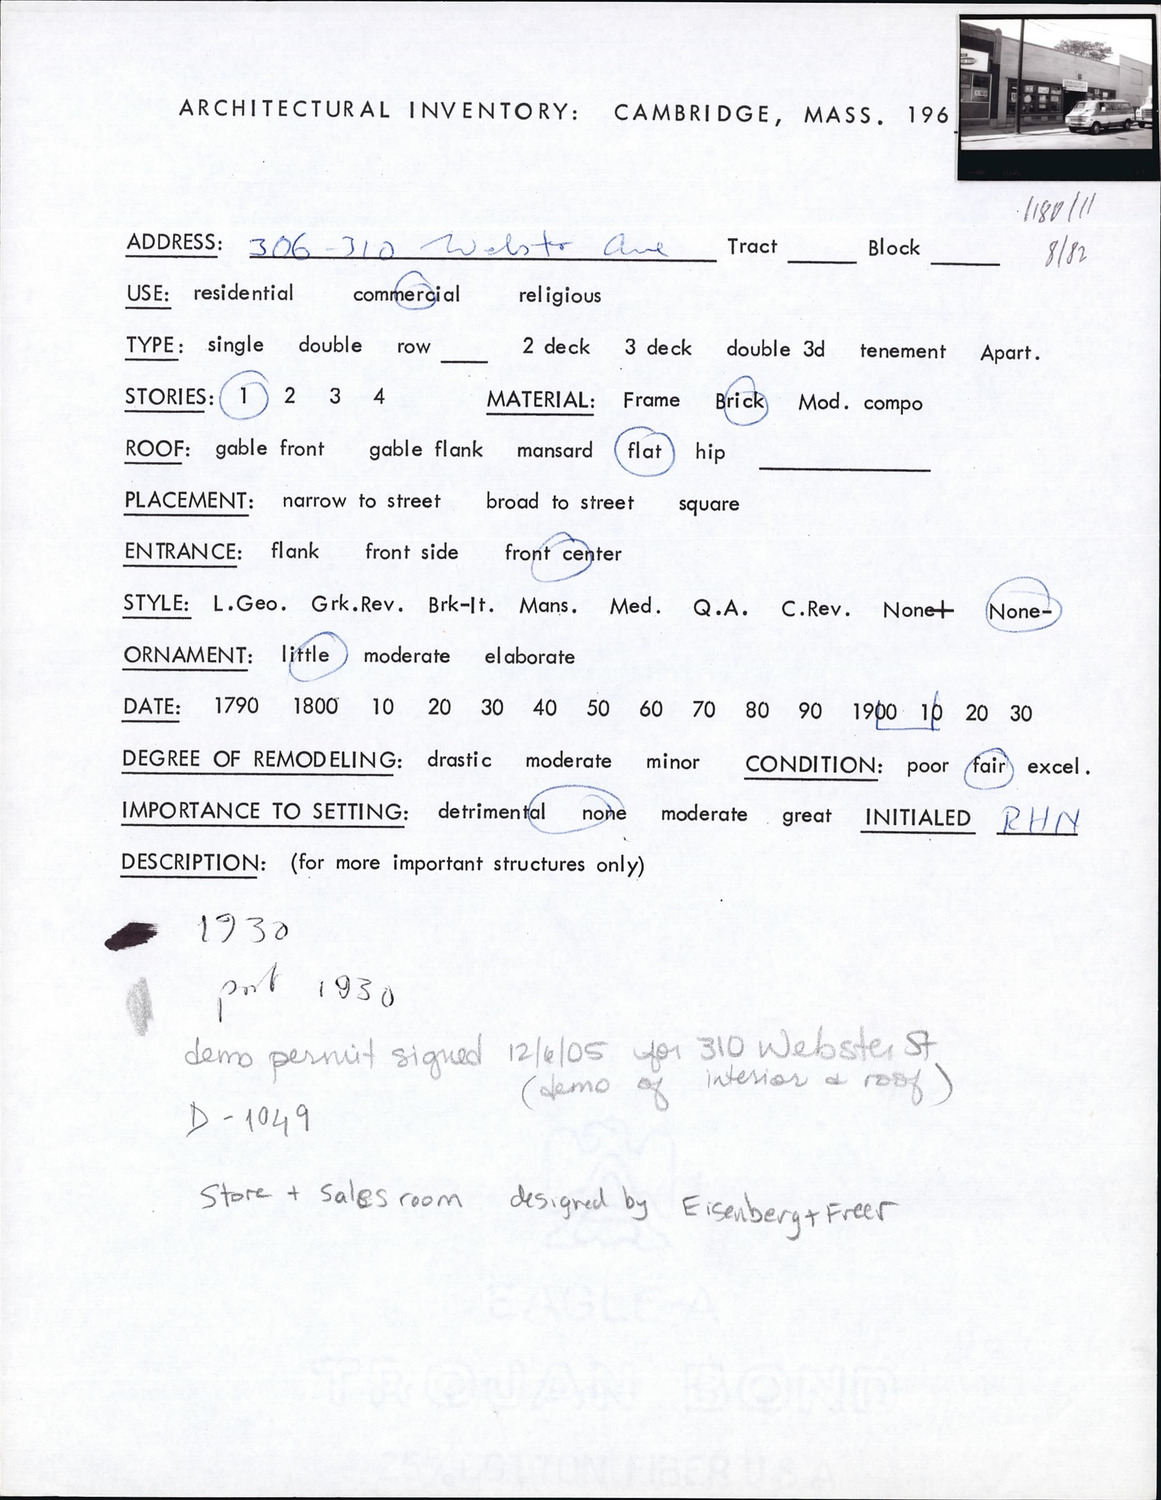 ARCHITECTURAL INVENTORY: CAMBRIDGE, MASS. 196
1180/11
8/82
ADDRESS: 306-310 Webster Ave Tract ____ Block ____
USE: residential commercial religious
TYPE: single double row ___ 2 deck 3 deck double 3d tenement Apart.
STORIES: 1 2 3 4 MATERIAL: Frame Brick Mod. compo
ROOF: gable front gable flank mansard flat hip ____
PLACEMENT: narrow to street broad to street square
ENTRANCE: flank front side front center
STYLE: L.Geo. Grk.Rev. Brk-It. Mans. Med. Q.A. C.Rev. None+ None-
ORNAMENT: little moderate elaborate
DATE: 1790 1800 10 20 30 40 50 60 70 80 90 1900 10 20 30
DEGREE OF REMODELING: drastic moderate minor CONDITION: poor fair excel.
IMPORTANCE TO SETTING: detrimental none moderate great INITIALED RHN
DESCRIPTION: (for more important structures only)
1930
post 1930
demo permit signed 12/6/05 for 310 Webster St
(demo of interior & roof)
D-1049
Store + Sales room designed by Eisenberg + Freer
EAGLE-A
TROJAN BOND
25% COTTON FIBER U.S.A